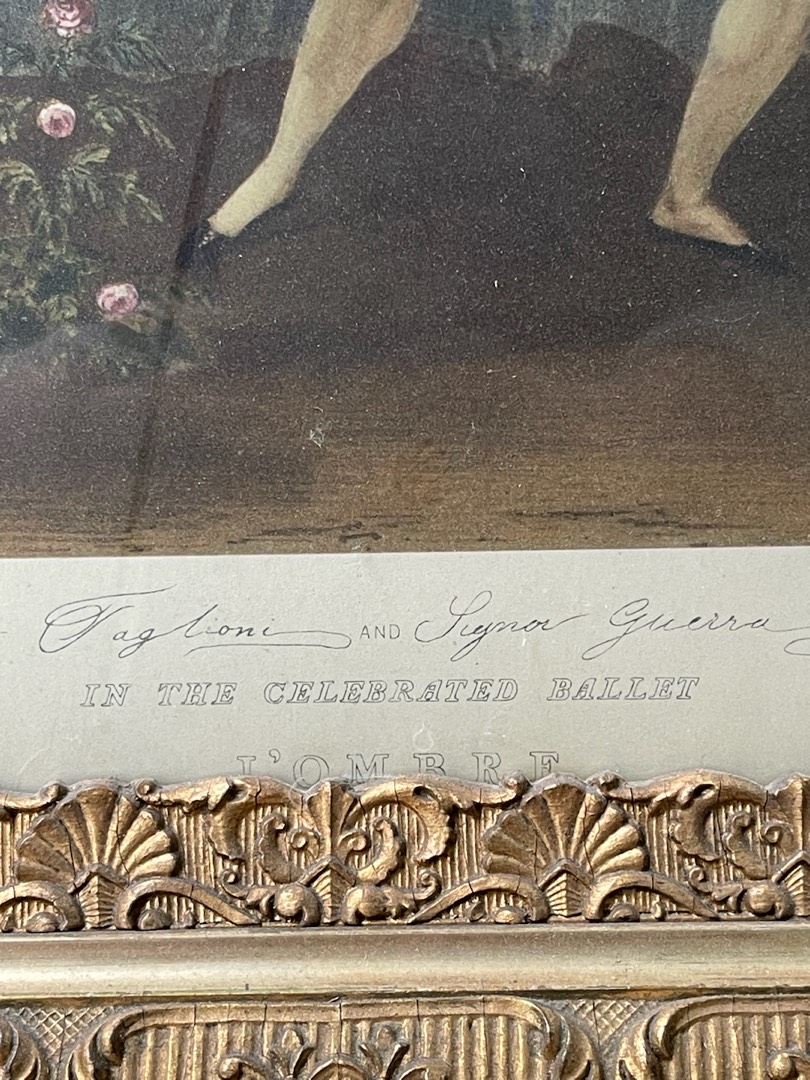 Taglioni AND Signor Guerra
IN THE CELEBRATED BALLET
L'OMBRE